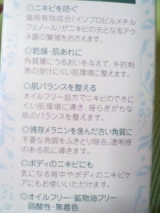 ◎ニキビを防ぐ
薬用有効成分(イソプロピルメチル
フェノール)がニキビの元となるアク
ネ菌の繁殖をおさえます。
◎乾燥・肌あれに
角質層にうるおいを与えて、外的刺
激の受けにくい肌環境に整えます。
◎肌バランスを整える
オイルフリー処方でニキビのできに
くい肌環境に導き、揺らぎがちな
肌のバランスを整えます。
◎残存メラニンを含んだ古い角質に
不要な角質をふきとり除去。透明感
のある肌に導きます。
◎ボディのニキビにも
気になる背中やボディのニキビケ
アにもお使いいただけます。
◎オイルフリー・鉱物油フリー
弱酸性・無着色